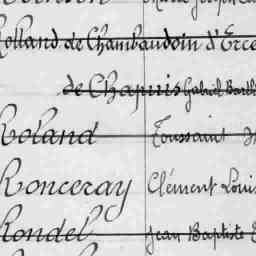 Rolland de Chambaudoin d'Erce
de Chapuis Gabriel Barth
Roland Toussaint
Ronceray Clément Louis
Rondel Jean Baptiste